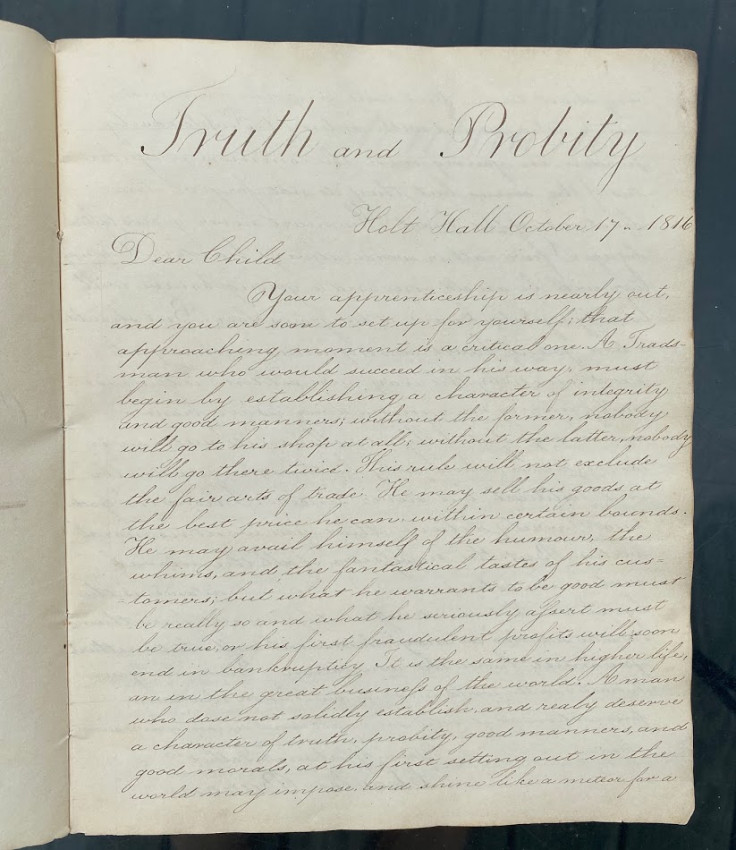 Truth and Probity
Holt Hall October 17. 1816
Dear Child
Your apprenticeship is nearly out,
and you are soon to set up for yourself; that
approaching moment is a critical one. A Trads-
man who would succeed in his way, must
begin by establishing a character of integrity
and good manners; without the former, nobody
will go to his shop at all; without the latter, nobody
will go there twice. This rule will not exclude
the fair arts of trade. He may sell his goods at
the best price he can within certain bounds.
He may avail himself of the humour, the
whims, and the fantastical tastes of his cus=
=tomers; but what he warrants to be good must
be really so and what he seriously aſsert must
be true, or his first fraudulent profits will soon
end in bankruptcy. It is the same in higher life,
an in the great busineſs of the world. A man
who dose not solidly establish, and realy deserve
a character of truth, probity, good manners, and
good morals, at his first setting out in the
world may impose, and shine like a meteor for a